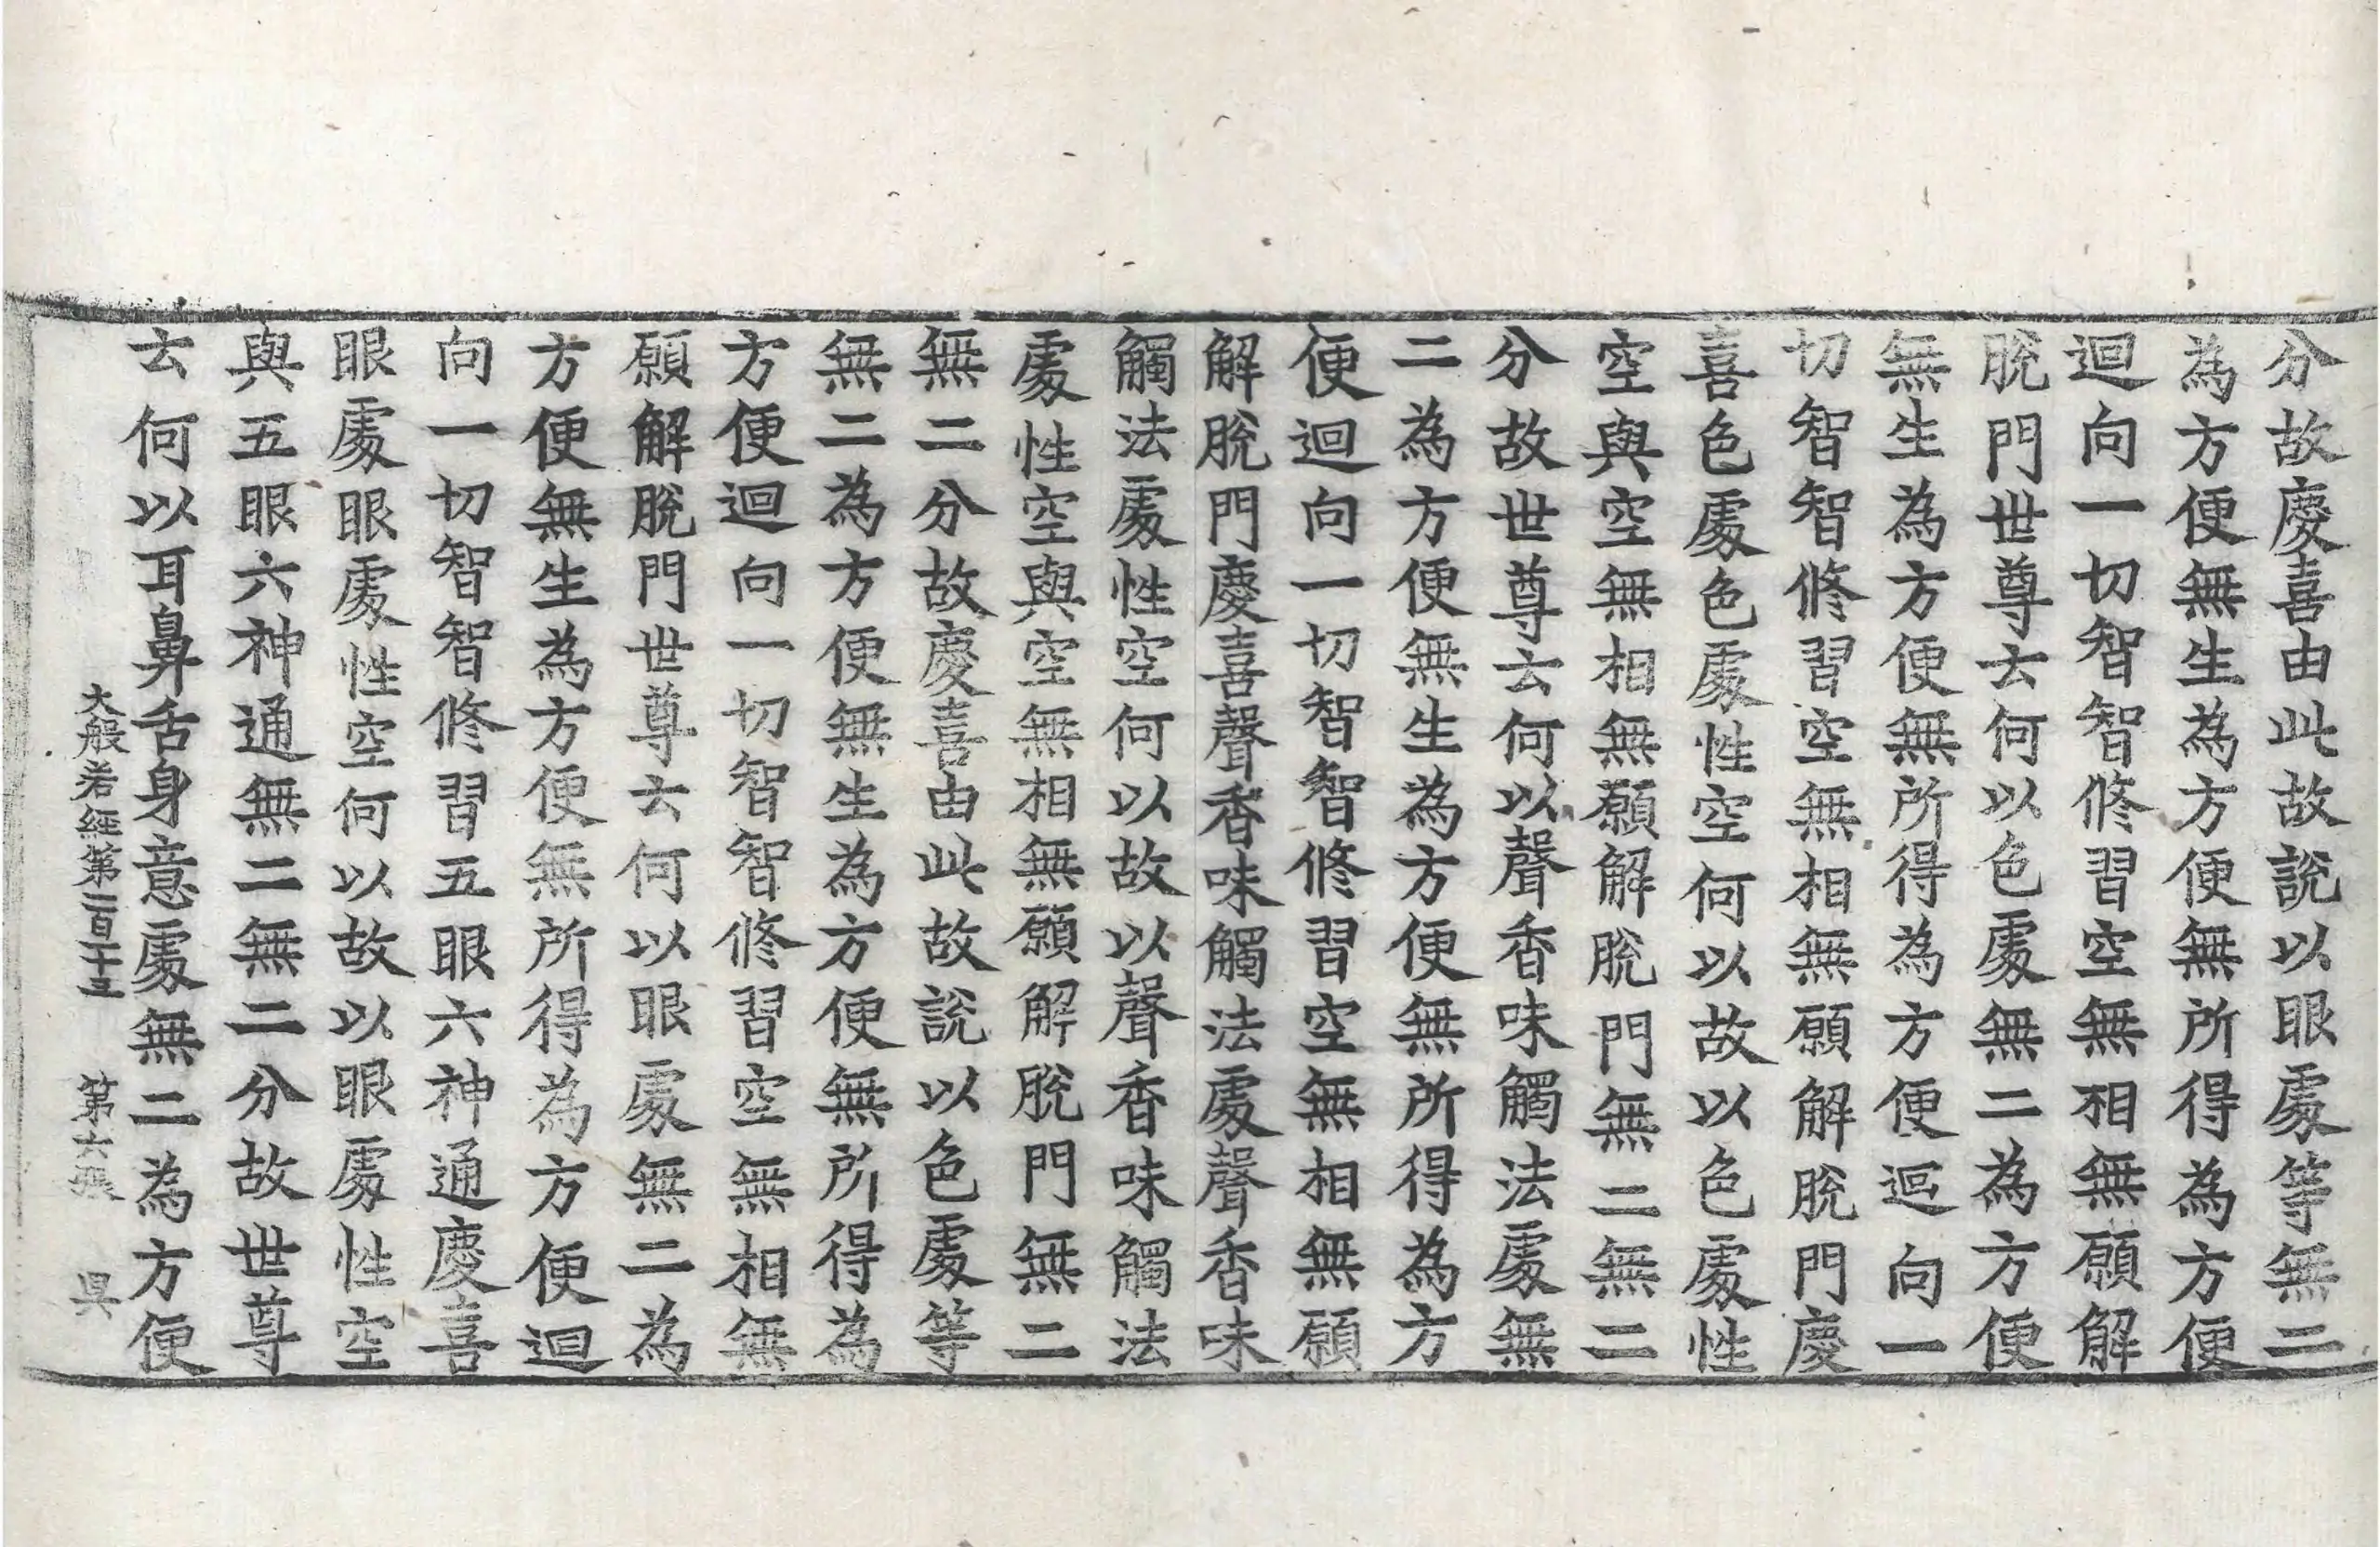 分故慶喜由此故說以眼處等無二
為方便無生為方便無所得為方便
迴向一切智智修習空無相無願解
脫門世尊云何以色處無二為方便
無生為方便無所得為方便迴向一
切智智修習空無相無願解脫門慶
喜色處色處性空何以故以色處性
空與空無相無願解脫門無二無二
分故世尊云何以聲香味觸法處無
二為方便無生為方便無所得為方
便迴向一切智智修習空無相無願
解脫門慶喜聲香味觸法處聲香味
觸法處性空何以故以聲香味觸法
處性空與空無相無願解脫門無二
無二分故慶喜由此故說以色處等
無二為方便無生為方便無所得為
方便迴向一切智智修習空無相無
願解脫門世尊云何以眼處無二為
方便無生為方便無所得為方便迴
向一切智智修習五眼六神通慶喜
眼處眼處性空何以故以眼處性空
與五眼六神通無二無二分故世尊
云何以耳鼻舌身意處無二為方便
大般若經第一百一十三 第六張 昃